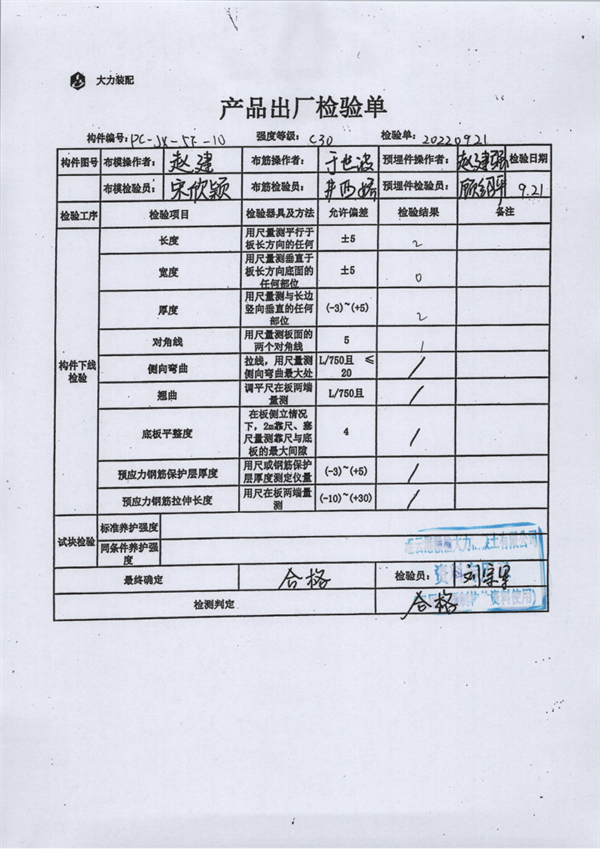 大力装配
产品出厂检验单
构件编号: PC-JX-5F-10 强度等级: C30 检验单: 20220921
构件图号 布模操作者: 赵建 布筋操作者: 于世波 预埋件操作者: 赵建强 检验日期
布模检验员: 宋欣颖 布筋检验员: 预埋件检验员: 9.21
检验工序 检验项目 检验器具及方法 允许偏差 检验结果 备注
构件下线检验
长度 用尺量测平行于板长方向的任何 ±5 2
宽度 用尺量测垂直于板长方向底面的任何部位 ±5 0
厚度 用尺量测与长边竖向垂直的任何部位 (-3)~(+5) 2
对角线 用尺量测板面的两个对角线 5 1
侧向弯曲 拉线，用尺量测侧向弯曲最大处 L/750且 ≤20 /
翘曲 调平尺在板两端量测 L/750且 /
底板平整度 在板侧立情况下，2m靠尺、塞尺量测靠尺与底板的最大间隙 4 /
预应力钢筋保护层厚度 用尺或钢筋保护层厚度测定仪量 (-3)~(+5) /
预应力钢筋拉伸长度 用尺在板两端量测 (-10)~(+30) /
试块检验 标准养护强度
同条件养护强度
最终确定 合格 检验员:
检测判定 合格